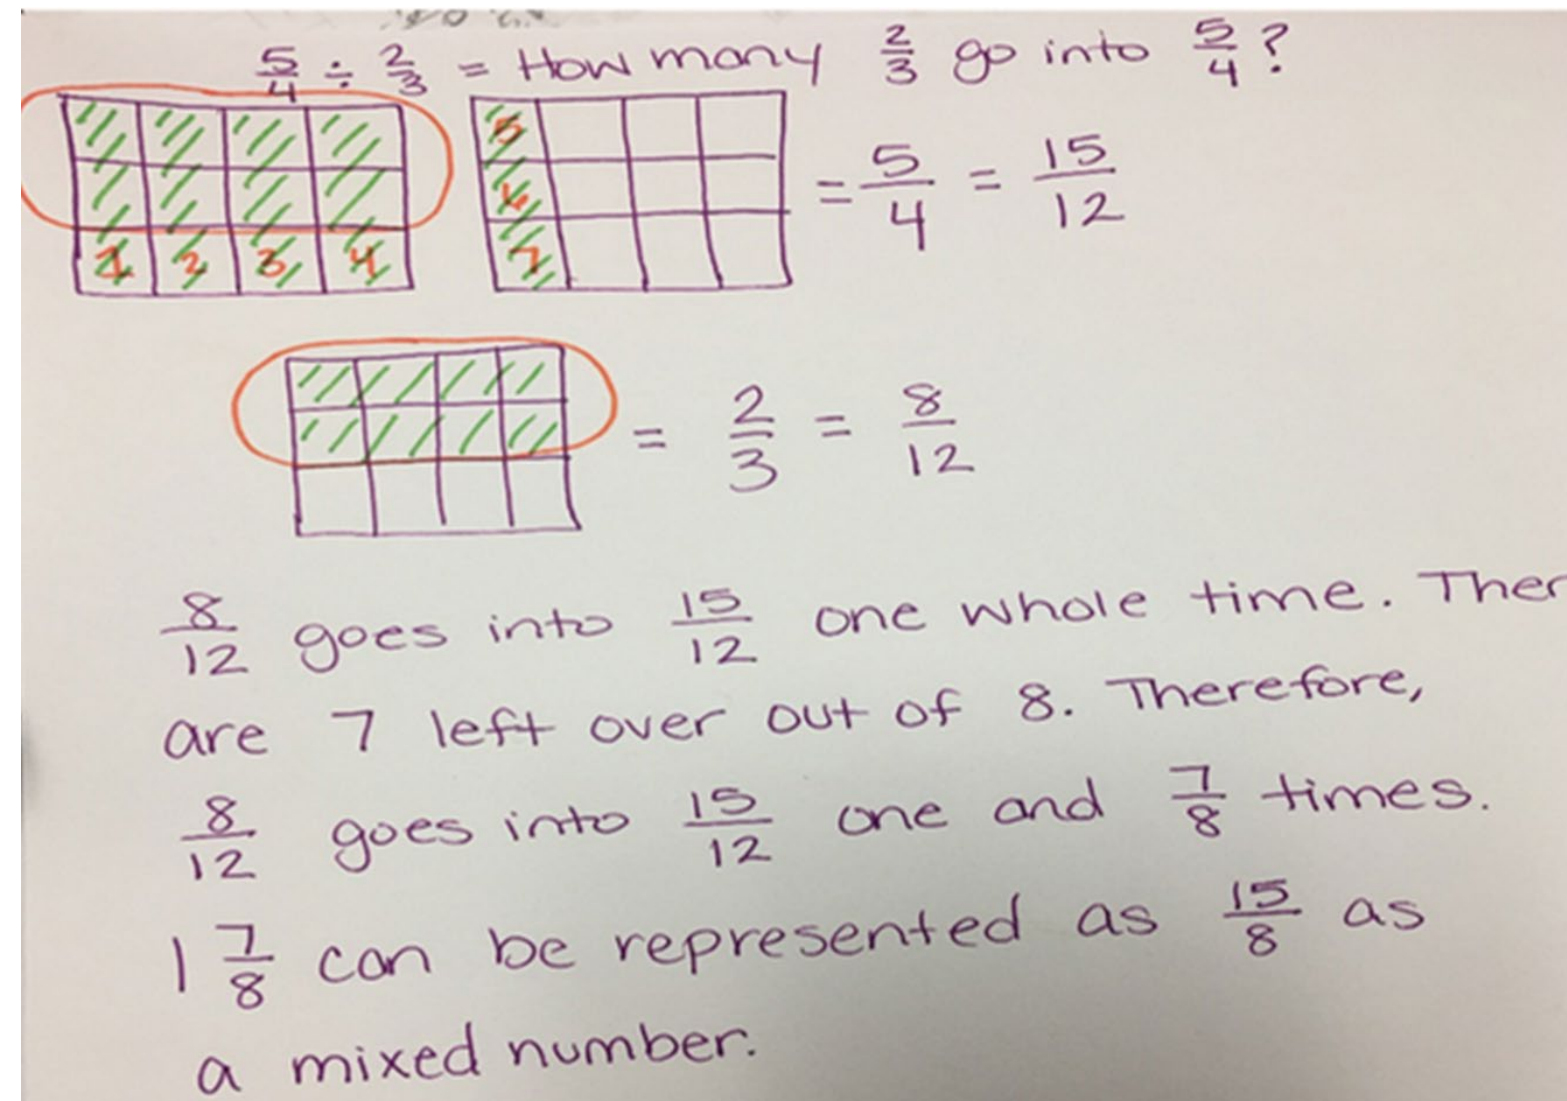 5/4 ÷ 2/3 = How many 2/3 go into 5/4?
1 2 3 4 5 6 7 = 5/4 = 15/12
= 2/3 = 8/12
8/12 goes into 15/12 one whole time. Ther
are 7 left over out of 8. Therefore,
8/12 goes into 15/12 one and 7/8 times.
1 7/8 can be represented as 15/8 as
a mixed number.